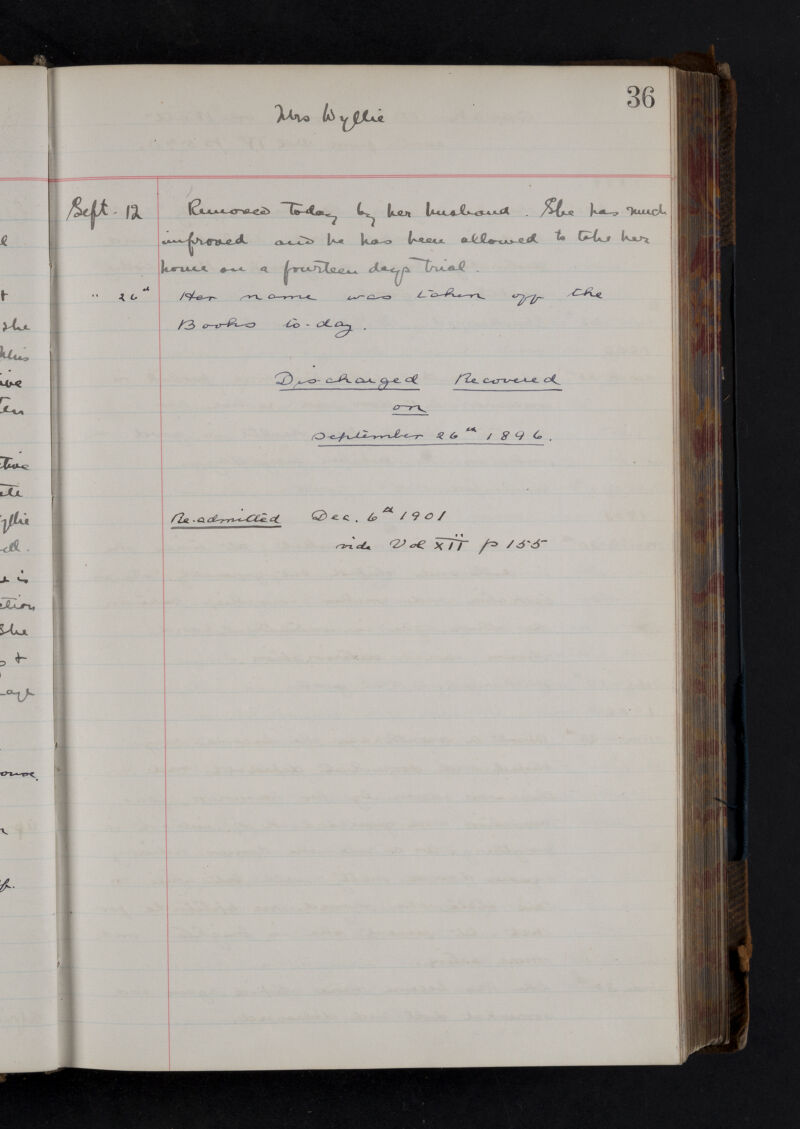 36
Mrs Wyllie
Sept. 12 Removed Today by her husband. She has much
improved and he has been allowed to take her
home on a fourteen days trial.
" 26th Her name was taken off the
Books to-day.
Discharged Recovered
on
September 26th 1896.
Re-admitted Dec. 6th 1901
vide Vol XII p 155
she